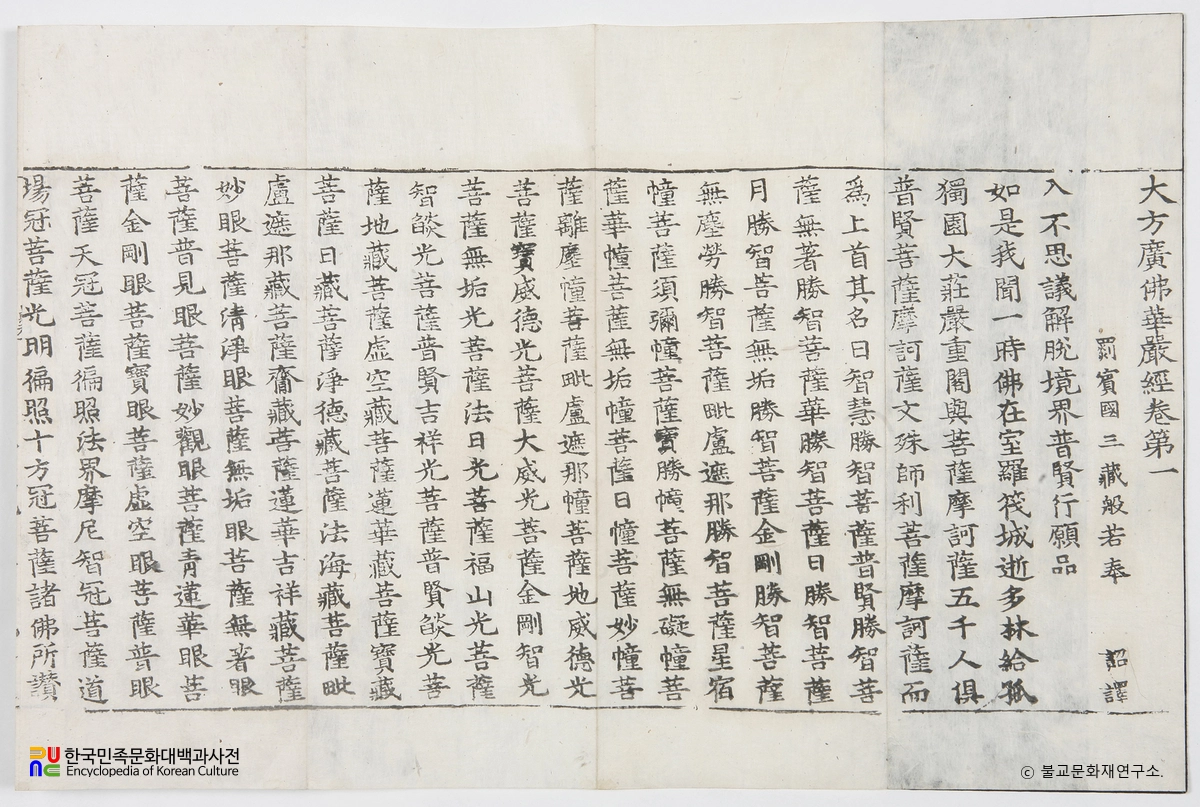 大方廣佛華嚴經卷第一
罽賓國三藏般若奉 詔譯
入不思議解脫境界普賢行願品
如是我聞一時佛在室羅筏城逝多林給孤
獨園大莊嚴重閣與菩薩摩訶薩五千人俱
普賢菩薩摩訶薩文殊師利菩薩摩訶薩而
爲上首其名曰智慧勝智菩薩普賢勝智菩
薩無著勝智菩薩華勝智菩薩日勝智菩薩
月勝智菩薩無垢勝智菩薩金剛勝智菩薩
無塵勞勝智菩薩毗盧遮那勝智菩薩星宿
幢菩薩須彌幢菩薩寶勝幢菩薩無礙幢菩
薩華幢菩薩無垢幢菩薩日幢菩薩妙幢菩
薩離塵幢菩薩毗盧遮那幢菩薩地威德光
菩薩寶威德光菩薩大威光菩薩金剛智光
菩薩無垢光菩薩法日光菩薩福山光菩薩
智燄光菩薩普賢吉祥光菩薩普賢燄光菩
薩地藏菩薩虛空藏菩薩蓮華藏菩薩寶藏
菩薩日藏菩薩淨德藏菩薩法海藏菩薩毗
盧遮那藏菩薩齎藏菩薩蓮華吉祥藏菩薩
妙眼菩薩清淨眼菩薩無垢眼菩薩無著眼
菩薩普見眼菩薩妙觀眼菩薩青蓮華眼菩
薩金剛眼菩薩寶眼菩薩虛空眼菩薩普眼
菩薩天冠菩薩徧照法界摩尼智冠菩薩道
場冠菩薩光明徧照十方冠菩薩諸佛所讚
한국민족문화대백과사전
Encyclopedia of Korean Culture
© 불교문화재연구소.